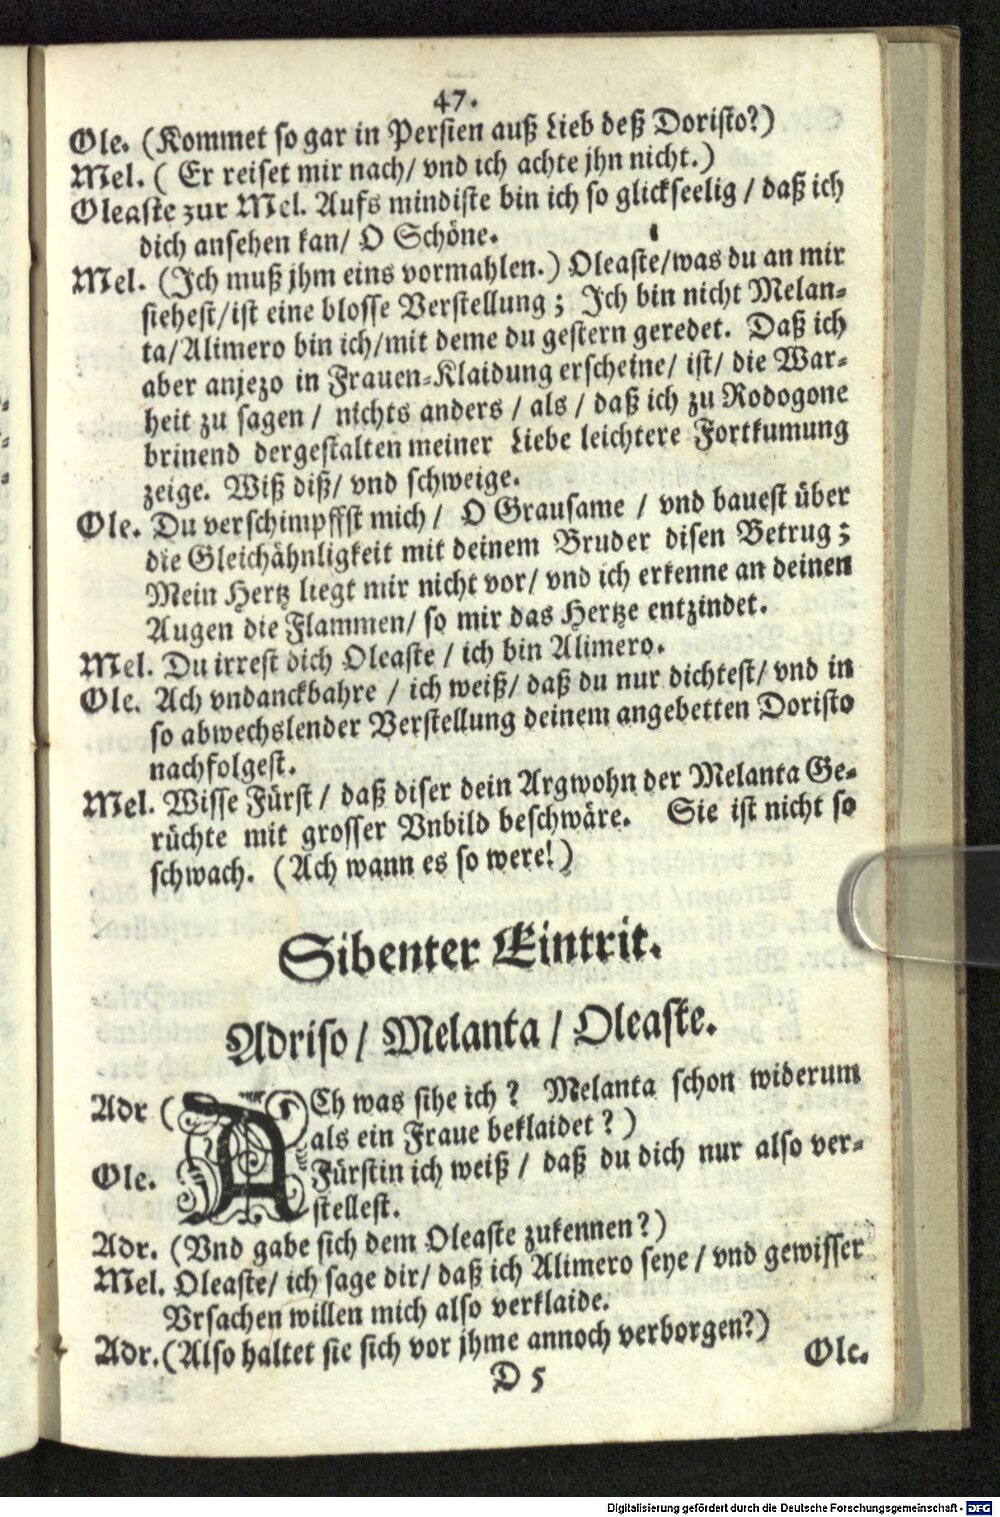 47.
Ole. (Kommet so gar in Persien auß Lieb deß Doristo?)
Mel. ( Er reiset mir nach/ vnd ich achte jhn nicht.)
Oleaste zur Mel. Aufs mindiste bin ich so glickseelig / daß ich
dich ansehen kan/ O Schöne.
Mel. (Ich muß jhm eins vormahlen.) Oleaste/was du an mir
siehest/ist eine blosse Verstellung ; Ich bin nicht Melan-
ta/Alimero bin ich/mit deme du gestern geredet. Daß ich
aber anjezo in Frauen-Klaidung erscheine/ ist/ die War-
heit zu sagen / nichts anders / als / daß ich zu Rodogone
brinend dergestalten meiner Liebe leichtere Fortkumung
zeige. Wiß diß/ vnd schweige.
Ole. Du verschimpffst mich / O Grausame / vnd bauest über
die Gleichähnligkeit mit deinem Bruder disen Betrug ;
Mein Hertz liegt mir nicht vor/ vnd ich erkenne an deinen
Augen die Flammen/ so mir das Hertze entzindet.
Mel. Du irrest dich Oleaste / ich bin Alimero.
Ole. Ach vndanckbahre / ich weiß/ daß du nur dichtest/ vnd in
so abwechslender Verstellung deinem angebetten Doristo
nachfolgest.
Mel. Wisse Fürst / daß diser dein Argwohn der Melanta Ge-
rüchte mit grosser Vnbild beschwäre. Sie ist nicht so
schwach. (Ach wann es so were!)
Sibenter Eintrit.
Adriso / Melanta / Oleaste.
Adr (ACh was sihe ich ? Melanta schon widerum
als ein Fraue beklaidet ? )
Ole. Fürstin ich weiß / daß du dich nur also ver-
stellest.
Adr. (Vnd gabe sich dem Oleaste zukennen?)
Mel. Oleaste/ ich sage dir/ daß ich Alimero seye / vnd gewisser
Vrsachen willen mich also verklaide.
Adr.(Also haltet sie sich vor jhme annoch verborgen?)
D 5 Ole.
Digitalisierung gefördert durch die Deutsche Forschungsgemeinschaft - DFG